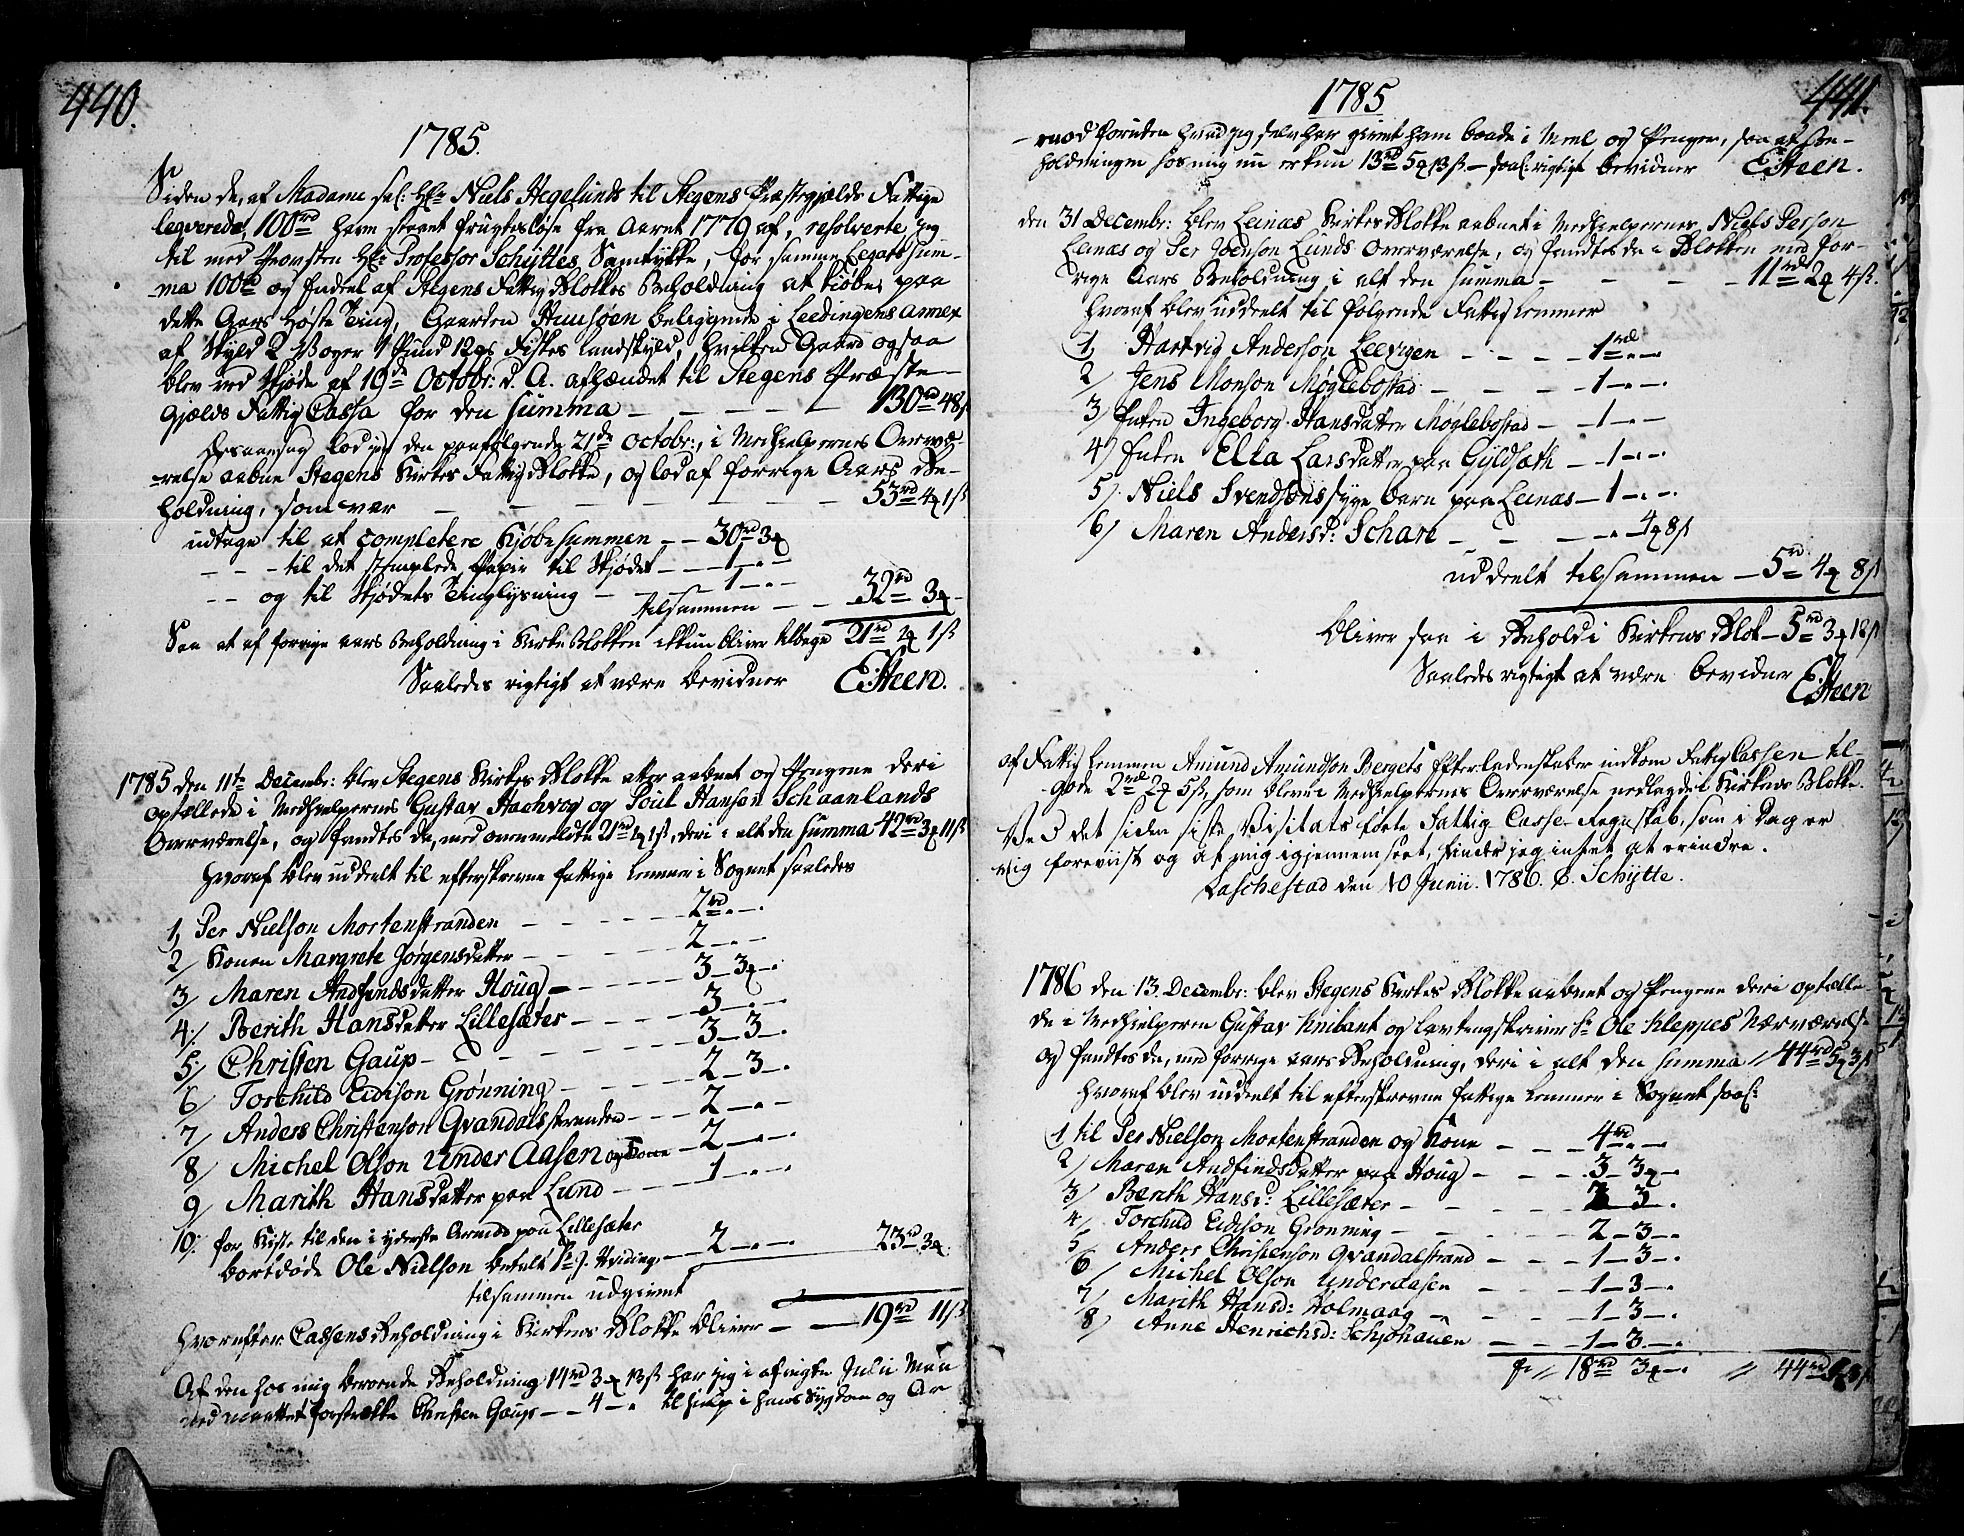 440.
1785.
Siden de, af Madame sal: Hr Niels Hegelunds til Stegens Præstegjælds Fattige
legerede 100rd have staaet frugtesløse fra Aaret 1779 af, resolverte jeg
til med Provsten Hr: Professor Schyttes Samtykke, for samme Legats Sum-
-ma 100rd og Endeel af Stegens Fattig Blokkes Beholdning at kiøbe, paa
dette Aars Høste Ting, Gaarden Huusøen beliggende i Leedingens annex
af Skyld 2 Woger 1 Pund 12 Fiskes Landskyld, hvilken Gaard ogsaa
blev ved Skjøde af 19de Octobr: d. A. afhændet til Stegens Præste-
Gjælds Fattig Cassa for den Summa — — — — 130rd 48ß
lod jeg den paafølgende 21de Octobr:, i Medhjelpernes Overvæ-
-relse aabne Stegens Kirkes Fattig Blokke, og lod af forrige Aars Be-
holdning, som var — — — — — — 53rd 4ʒ 1ß
udtage til at completere Kjøbesummen — — 30rd 3ʒ
— — — til det stemplede Papir til Skjødet — — 1 — . —
— — og til Skjødets Tinglysning — — 1 — . —
tilsammen — — 32rd 3ʒ —
Saa at af forrige aars Beholdning i Kirke Blokken ikkun bliver tilbage 21rd 1ʒ 1ß
Saaledes rigtigt at være bevidner E:Steen.
1785 den 11te Decembr: blev Stegens Kirkes Blokke atter aabnet og Pengene deri
optællede i Medhjelpernes Gustav Hachvog og Poul Hanson Schaanlands
Overværelse, og fandtes da, med ovenmeldte 21rd 1ʒ 1ß, deri i alt den Summa 42rd 3ʒ 11ß
hvoraf blev uddeelt til efterskrevne fattige Lemmer i Sognet saaledes
1, Per Nielson Mortenstranden — — — — 2rd . —
2/ Konen Margrete Jørgensdatter — — — — 2 — . —
3/ Maren Andfindsdatter Houg — — — — 3 — 3ʒ —
4/. Berith Hansdatter Lillesæter — — — — 3 — . —
5/. Christen Gaup — — — — 3 — 3 — .
6/ Torchild Eidison Grønning — — — — 2 — 3 — .
7/ Anders Christenson Qvandalsstranden — — — 2 — . —
8/ Michel Olson Under Aasen og Kone — 2 — . —
9/ Marith Hansdatter paa Lund — — — 1 — . —
10: for Kiste til den i yderste Armod paa Lillesæter
bortdøde Ole Nielson betalt Sr J. Hviding — 2 — . — 23rd 3ʒ
tilsammen udgivet
hvorefter Cassens Beholdning i Kirkens Blokke bliver — — 19rd 11ß
Af den hos mig værende Beholdning 14rd 3ʒ 13ß har jeg i afvigte Julii Maa
-ned maattet forstrække Christen Gaup — — 4 — . til hielp i hans Sygdom og Ar
441.
1785
-mod foruden hvad jeg selv har givet ham baade i Meel og Penger, saa at Be-
holdningen hos mig nu er kun 13rd 5ʒ 13ß — saal: rigtigt bevidner E:Steen.
den 31 Decembr: blev Leinæs Kirkes Blokke aabnet i Medhjelpernes Niels Person
Leinæs og Per Joenson Lunds Overværelse, og fandtes da i Blokken med for-
rige Aars Beholdning i alt den Summa — — — — 11rd 2ʒ 4ß.
hvoraf blev uddeelt til følgende Fattig Lemmer
1, Hartvig Anderson Leevigen — — — 1rd . —
2/ Jens Monson Møglebostad — — — 1 — . — .
3/ Enken Ingeborg Hansdatter Møglebostad — — 1 — . —
4/ Enken Ella Larsdatter paa Gyldsæth — — 1 — . —
5/. Niels Svendsons syge barn paa Leinæs — 1 — . — .
6/ Maren Andersd: Schare — — — . — 4ʒ 8ß
uddeelt tilsammen — 5rd 4ʒ 8ß
bliver saa i Behold i Kirkens Blok — 5rd 3ʒ 12ß
Saaledes rigtigt at være bevidner E:Steen
af Fattig Lemmen Amund Amundson Bergets Efterladenskaber indkom Fattig Cassen til-
gode 2rd 2ʒ 5ß, som bleve i Medhjelpernes Overværelse nedlagde i Kirkens Blokke.
Ved det siden siste Visitats førte Fattig Casse-Regnskab, som i Dag er
mig foreviist og af mig igjennemseet, finder jeg intet at erindre.
Laschestad den 10 Junii. 1786. E. Schytte.
1786 den 13. Decembr: blev Stegens Kirkes Blokke aabnet og Pengene deri optælle-
de i Medhjelperen Gustav Knibant og Lavtingskriver Sr Ole Kleppes Nærværelse
og fandtes da, med forrige aars Beholdning, deri i alt den Summa // 44rd 5ʒ 3ß
hvoraf blev uddeelt til efterskrevne fattige Lemmer i Sognet saal:
1, til Per Nielson Mortenstranden og Kone — — — 4rd . —
2/ Maren Andfindsdatter paa Houg — — — 3 — 3ʒ — .
3/ Berith Hansd: Lillesæter — — — 2 — 3 — .
4/ Torchild Eidison Grønning — — — 2 — 3 — .
5/ Anders Christenson Qvandalstrand — — 1 — 3 — .
6/ Michel Olson Underaasen — — — 1 — 3 — .
7/ Marith Hansd: Holmaag — — — 1 — 3 — .
8/ Anne Henrichsd: Schjøhauen — — 1 — 3 — .
18rd 3ʒ — . // 44rd 5ʒ 3ß